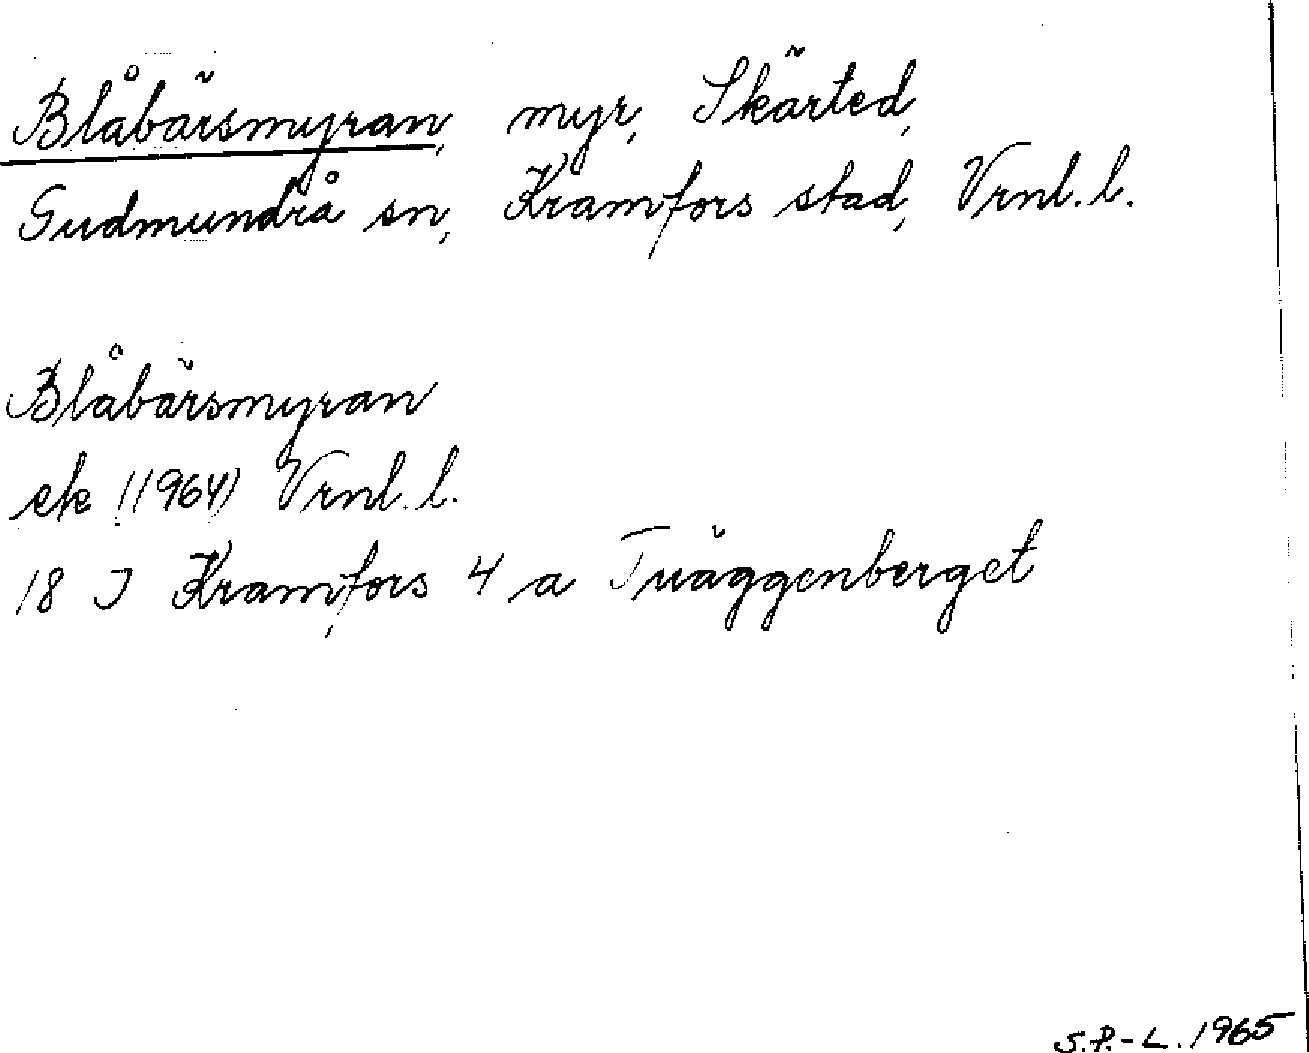 Blåbärsmyran, myr, Skärted,
Gudmundrå sn, Kramfors stad, Vrnl. l.
Blåbärsmyran
ek (1964) Vrnl. l.
18 J Kramfors 4 a Tväggenberget
S.P.-L. 1965